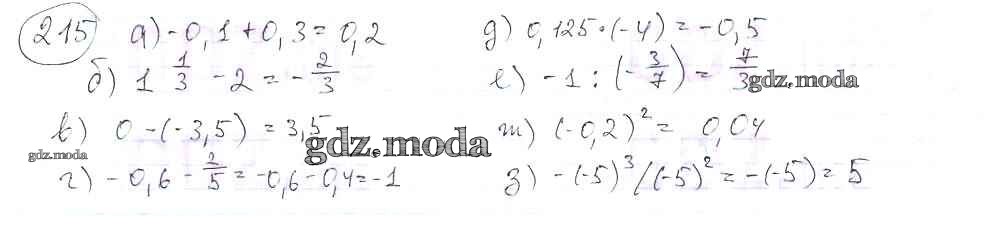 215 а) -0,1+0,3=0,2
б) 1 1/3 - 2 = - 2/3
в) 0-(-3,5) = 3,5
г) -0,6 - 2/5 = -0,6-0,4=-1
д) 0,125·(-4) = -0,5
е) -1 : (- 3/7) = 7/3
ж) (-0,2)² = 0,04
з) -(-5)³/(-5)² = -(-5) = 5
gdz.moda
gdz.moda
gdz.moda